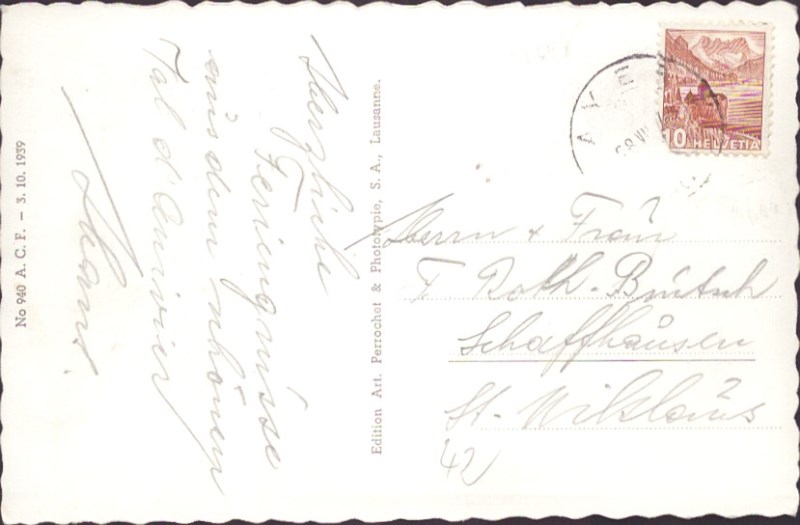 Herzliche
Feriengrüsse
aus dem schönen
Val d'Anivier
Hans.
No 940 A. C. F. – 3. 10. 1939
Edition Art. Perrochet & Phototypie, S. A., Lausanne.
10 HELVETIA
Herrn + Frau
F Roth-Brütsch
Schaffhausen
St. Niklaus
42